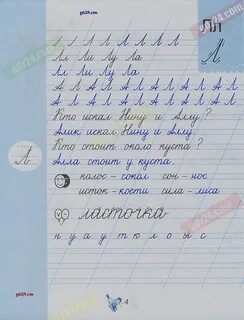 gdz24.com
Пл
Л
Л Л Л Л Л Л Л Л
Лл Ли Лу Ла
Лл Ли Лу Ла
А Л А Л А Л А Л А Л А Л
А Л А Л А Л А Л А Л А Л
Кто искал Нину и Аллу?
Алик искал Нину и Аллу.
Кто стоит около куста?
Л
Алла стоит у куста.
колос - сокол сон - нос
исток - кости сила - лиса
ласточка
н у а у т к л о ы с
gdz24.com
4